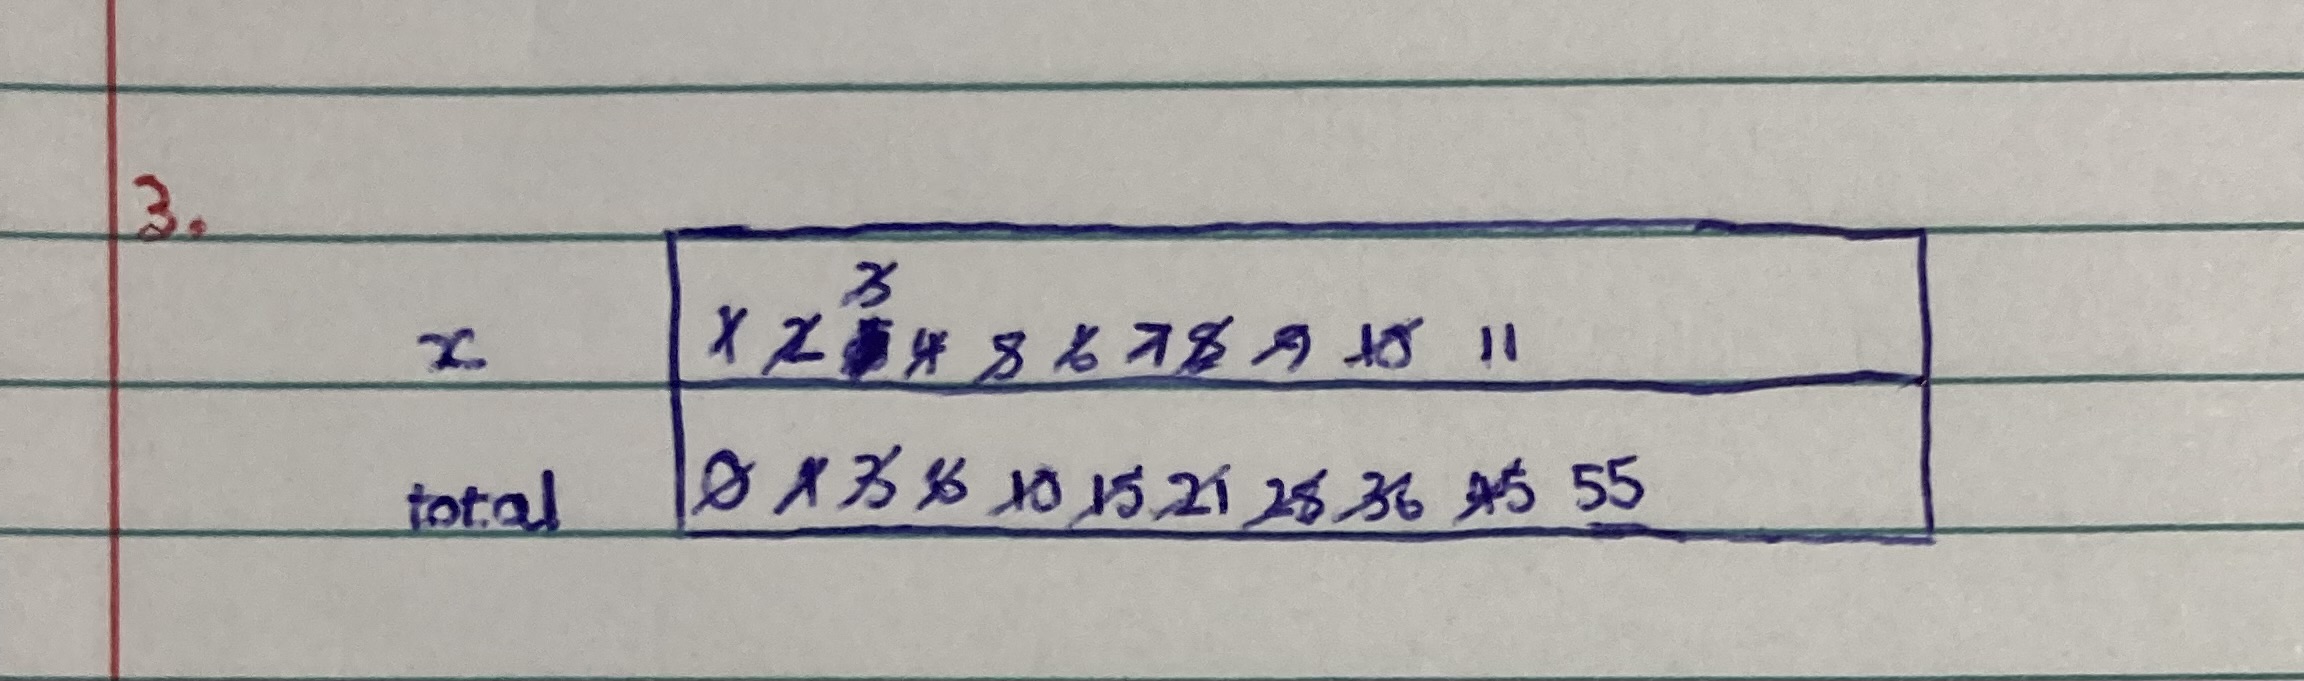 3.
3
x 1 2 4 5 6 7 8 9 10 11
total 0 1 3 6 10 15 21 28 36 45 55